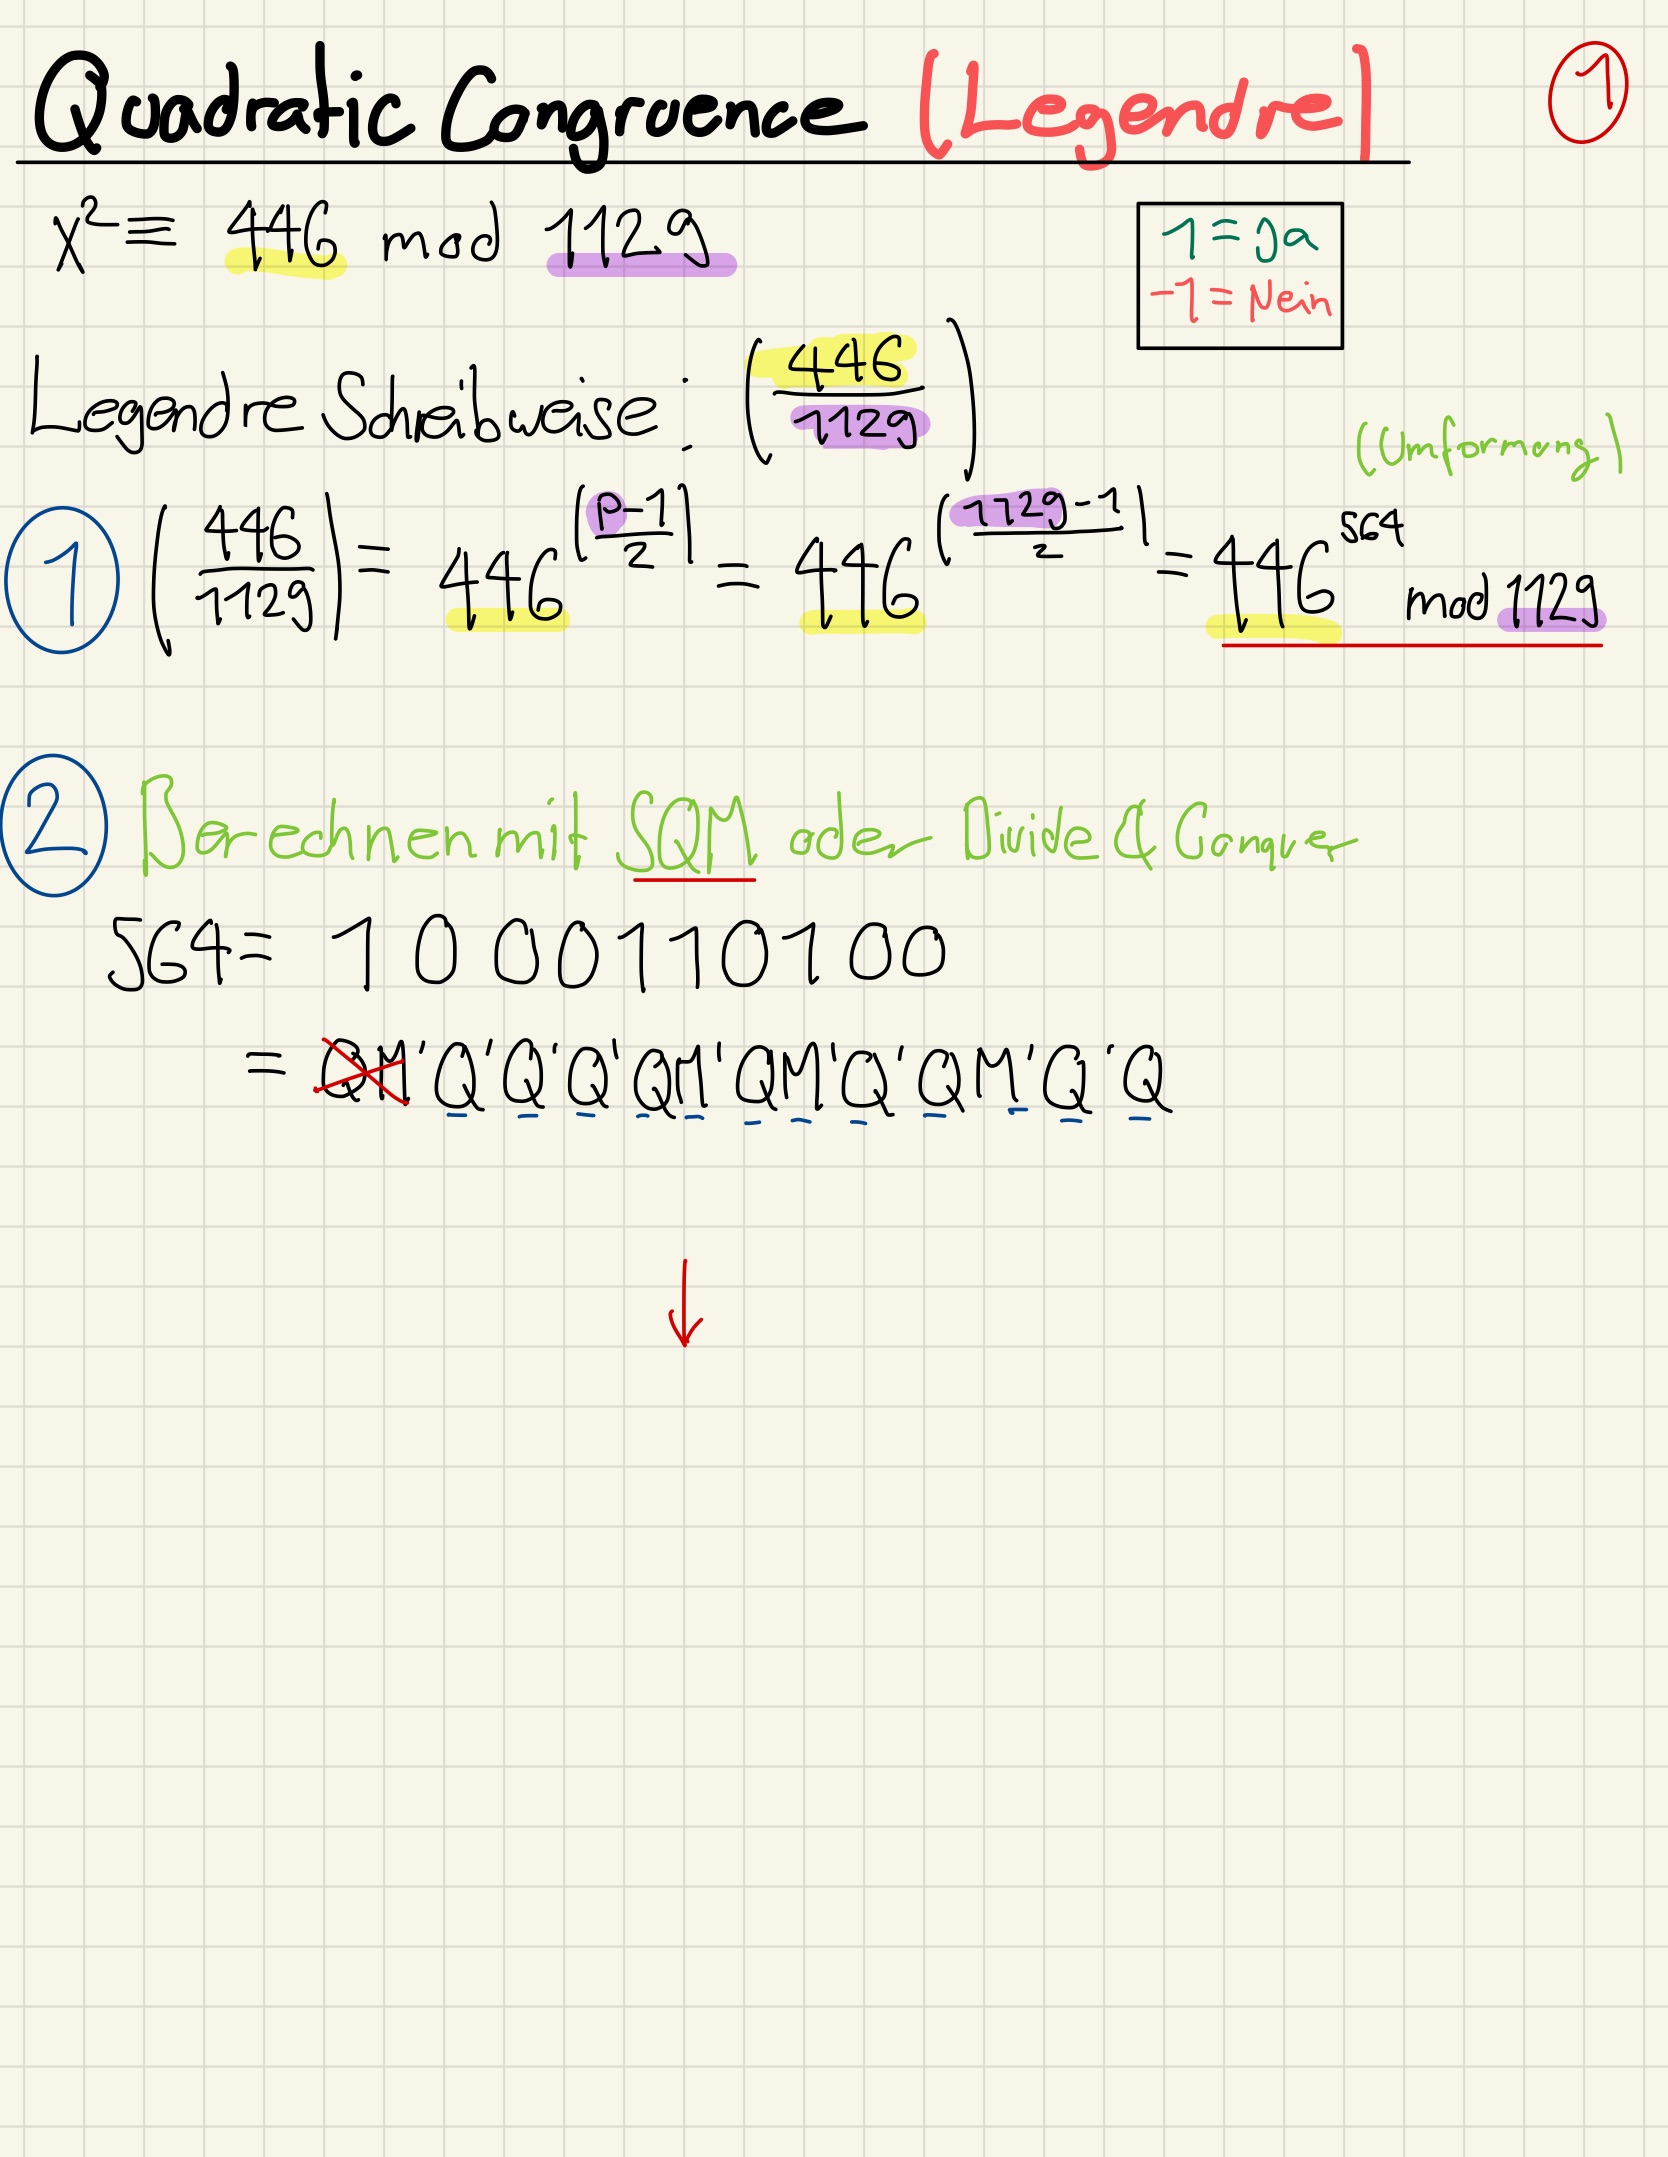 Quadratic Congruence (Legendre) 1
x² ≡ 446 mod 1129
1 = Ja
-1 = Nein
Legendre Schreibweise: (446/1129)
(Umformung)
1 (446/1129) = 446^((p-1)/2) = 446^((1129-1)/2) = 446^564 mod 1129
2 Berechnen mit SQM oder Divide & Conquer
564 = 1000110100
= QM'Q'Q'Q'QM'QM'Q'QM'Q'Q